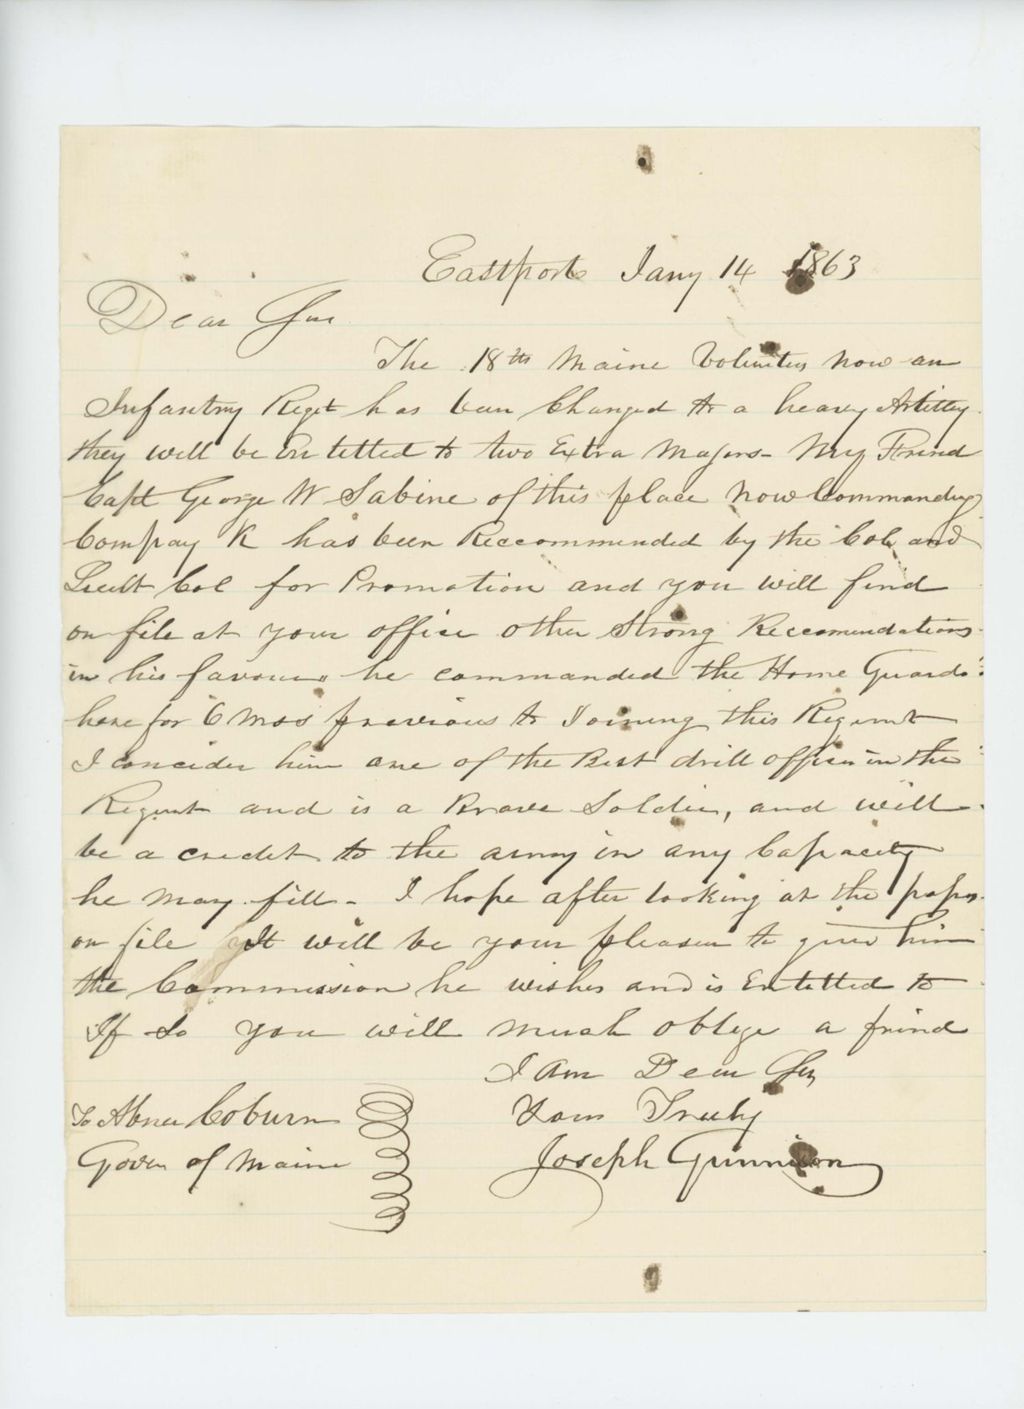 Eastport Jany 14 1863
Dear Sir
The 18th Maine Volunters now an
Infantry Regt has been Changed to a heavy Artilley
they will be Entitled to two Extra Majors- My Friend
Capt George W Sabine of this place now Commanding
Compay K has been Reccommended by the Col and
Lieut Col for Promotion and you will find
on file at your office other Strong Reccomendations
in his favour he commanded the Home Guards
here for 6 Mos previous to Joining this Regiment
I concider him one of the Best drill officer in the
Regimt and is a Brave Soldier, and will
be a credit to the army in any Capacity
he may fill- I hope after looking at the papers
on file It will be your pleasure to give him
the Commission he wishes and is Entitled to
If So you will much oblige a frind
I Am Dear Sir
Yours Truly
Joseph Gunnison
To Abner Coburn
Gover of Maine